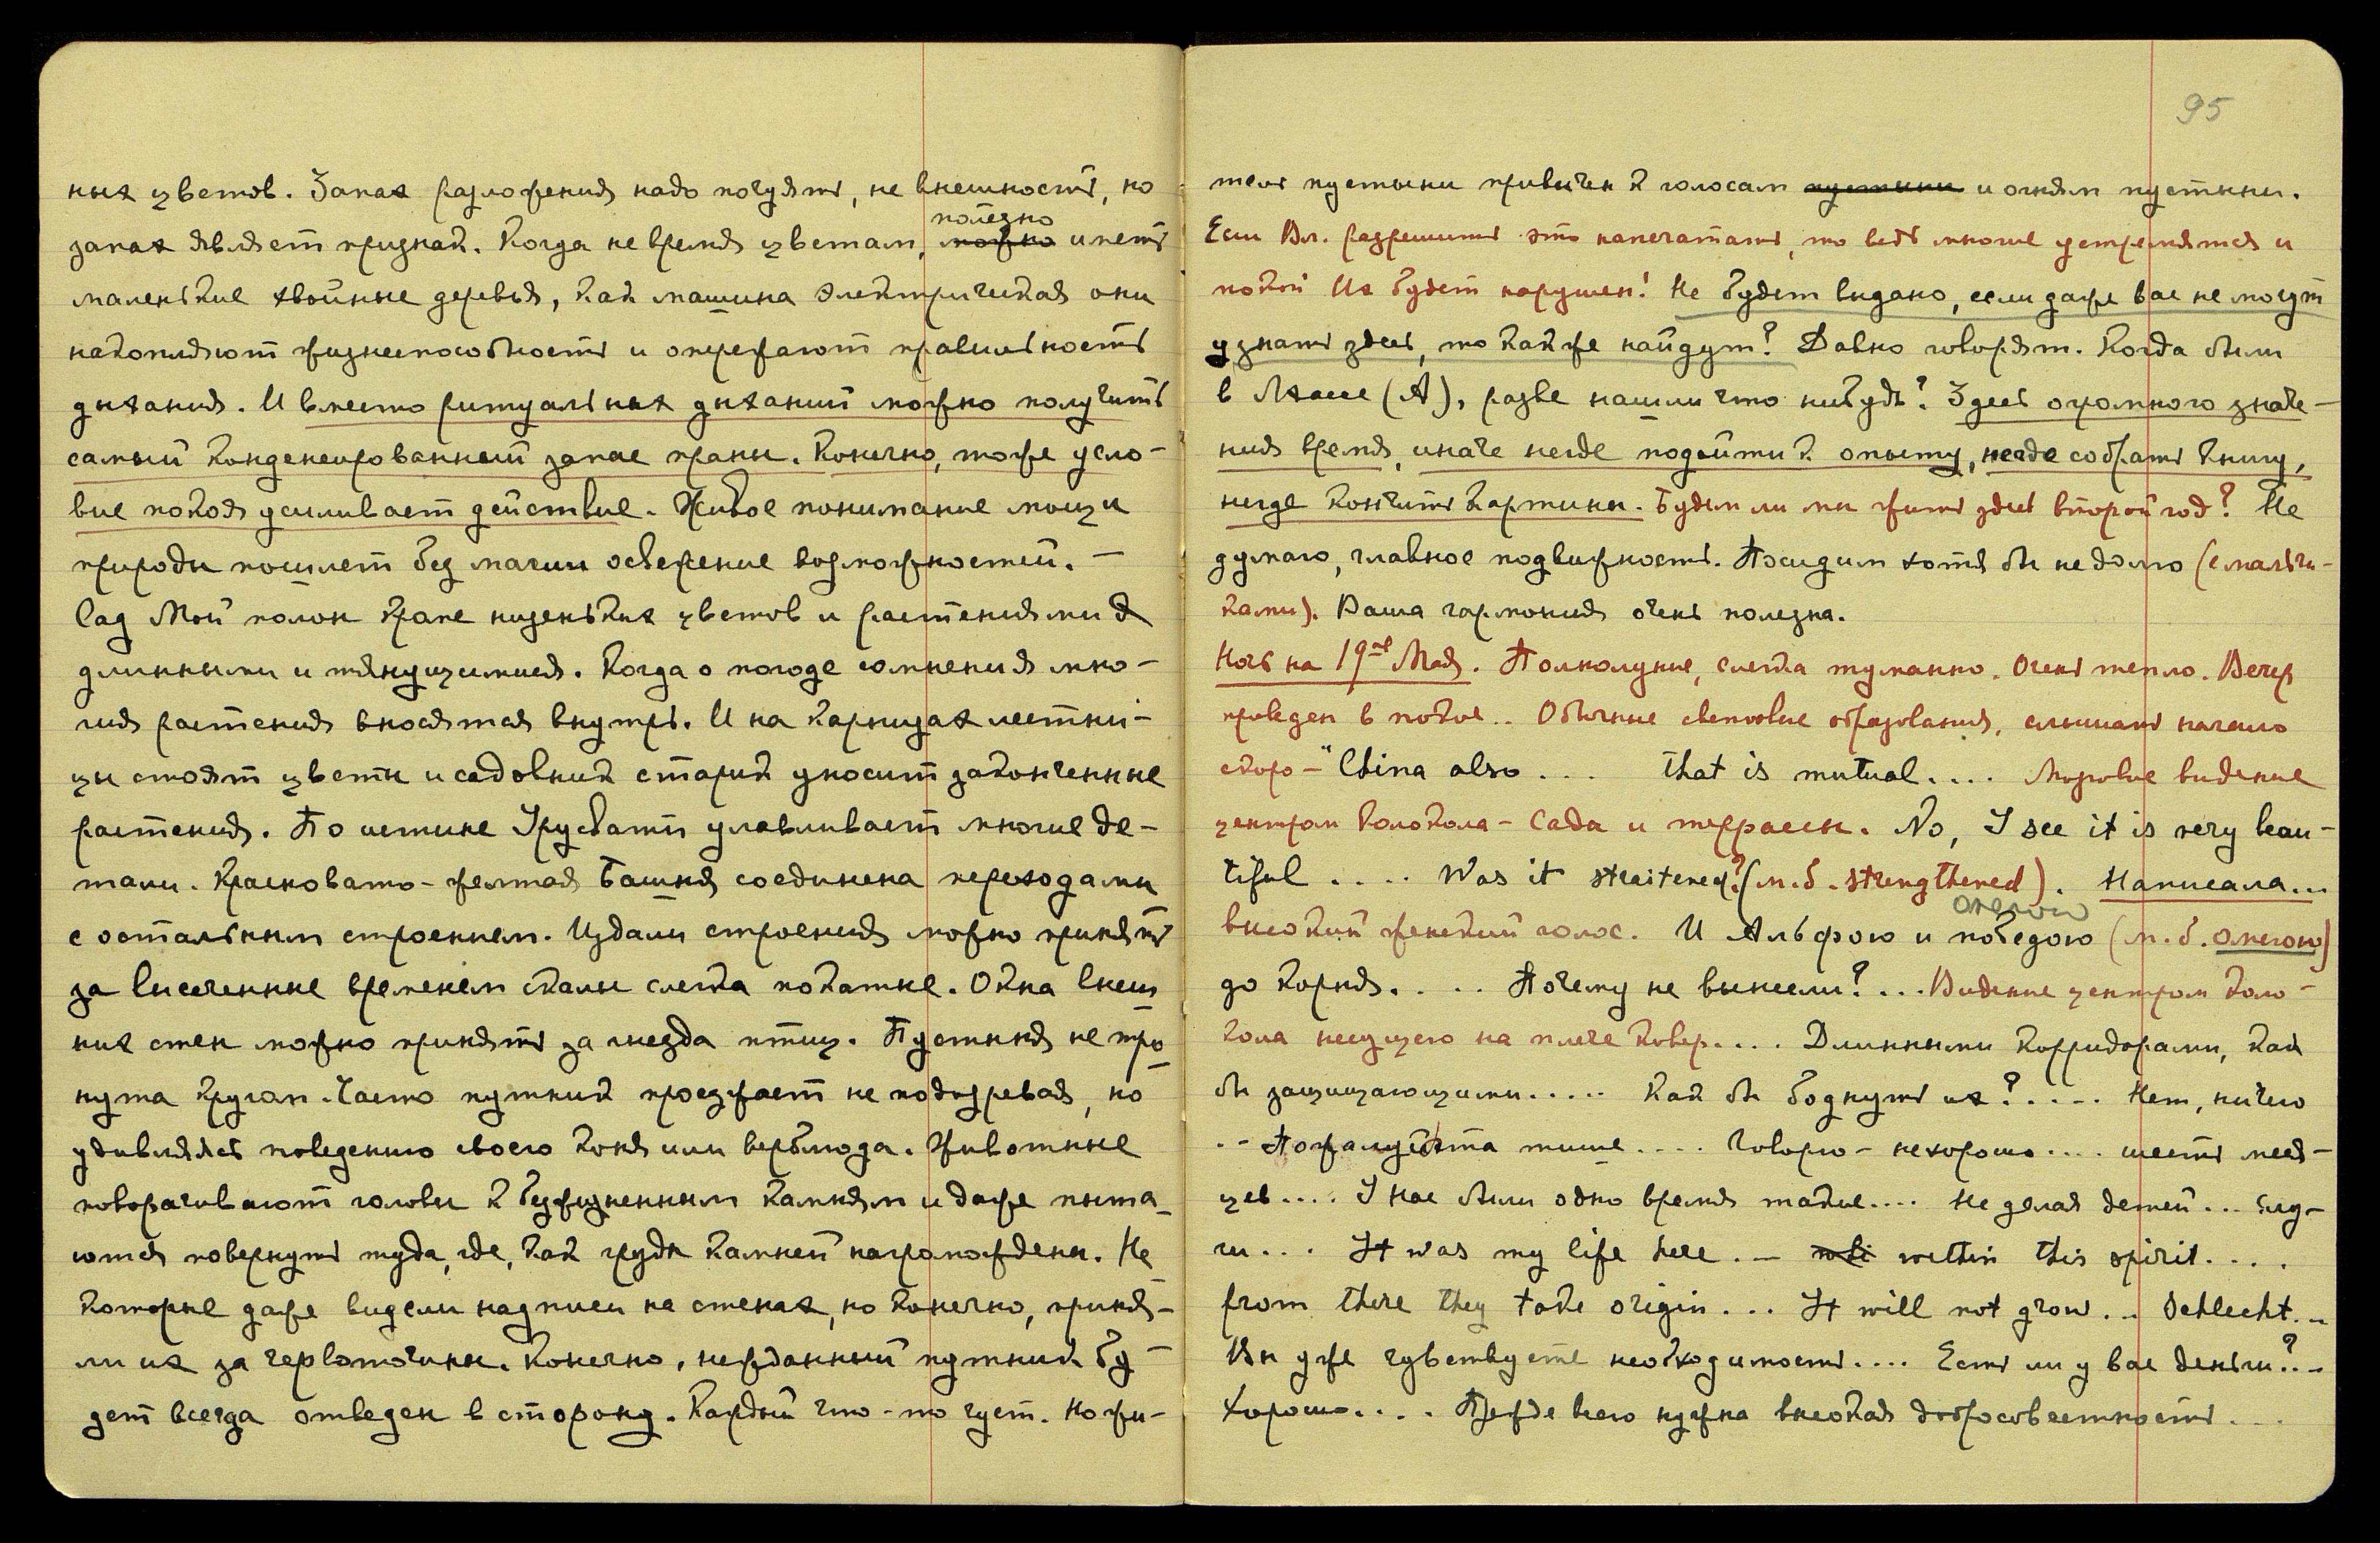 ных цветов. Запах разложения надо почуять, не внешность, но
запах являет признак. Когда не время цветам, можно полезно иметь
маленькие хвойные деревья, как машина электрическая они
накопляют жизнеспособность и опережают правильность
дыхания. И вместо ритуальных дыханий можно получить
самый конденсированный запас праны. Конечно, тоже усло-
вие покоя усиливает действие. Живое понимание мощи
природы пошлет без магии освежение возможностей. —
Сад Мой полон кроме низеньких цветов и растениями
длинными и тянущимися. Когда о погоде сомнения мно-
гия растения вносятся внутрь. И на карнизах лестни-
цы стоят цветы и садовник старик уносит законченные
растения. По истине Урусвати улавливает многие де-
тали. Красновато-желтая Башня соединена переходами
с остальным строением. Издали строения можно принять
за высеченные временем скалы слегка покатые. Окна внеш
них стен можно принять за гнезда птиц. Пустыня не тро
нута кругом. Часто путник проезжает не подозревая, но
удивляясь поведению своего коня или верблюда. Животные
поворачивают головы к безжизненным камням и даже пыта-
ются повернуть туда, где, как груды камней нагромождены. Не
которые даже видели надписи на стенах, но конечно, приня-
ли их за червоточины. Конечно, нежданный путник бу-
дет всегда отведен в сторону. Каждый что-то чует. Но жи-
95
тель пустыни привычен к голосам пустыни и огням пустыни.
Если Вл. разрешить это напечатать, то ведь многие устремятся и
покой Их будет нарушен! Не будет видано, если даже вас не могут
узнать здесь, то как же найдут? Давно говорят. Когда были
в Лхасе (А), разве нашли что нибудь? Здесь огромного значе-
ния время, иначе негде подойти к опыту, негде собрать книгу,
негде кончить картины. Будем ли мы жить здесь второй год? Не
думаю, главное подвижность. Посидим хотя бы не долго (с мальчи-
ками). Ваша гармония очень полезна.
Ночь на 19ое Мая. Полнолуние, слегка туманно. Очень тепло. Вечер
проведен в покое.. Обычные световые образования, слышать начала
скоро – "China also ... that is mutual.... Моровые видение
центром колокола – Сада и террасы. No, I see it is very beau-
tiful .... Was it straitened? (м.б. strengthened). Написала...
высокий женский голос. И Альфою и победою омегою (м.б. омегою)
до корня.... Почему не вынесли?... Видение центром коло-
кола несущего на плече ковер.... Длинными корридорами, как
бы защищающими..... Как бы боднуть их?.... Нет, ничего
.. Пожалуйста тише.... Говорю – нехорошо.... шесть меся-
цев.... У нас были одно время такие.... Не делая детей...
... It was my life here. – within this spirit....
from there they take origin... It will not grow... Schlecht...
Вы уже чувствуете необходимость.... Есть ли у вас деньги?..
Хорошо.... Прежде всего нужна высокая добросовестность...